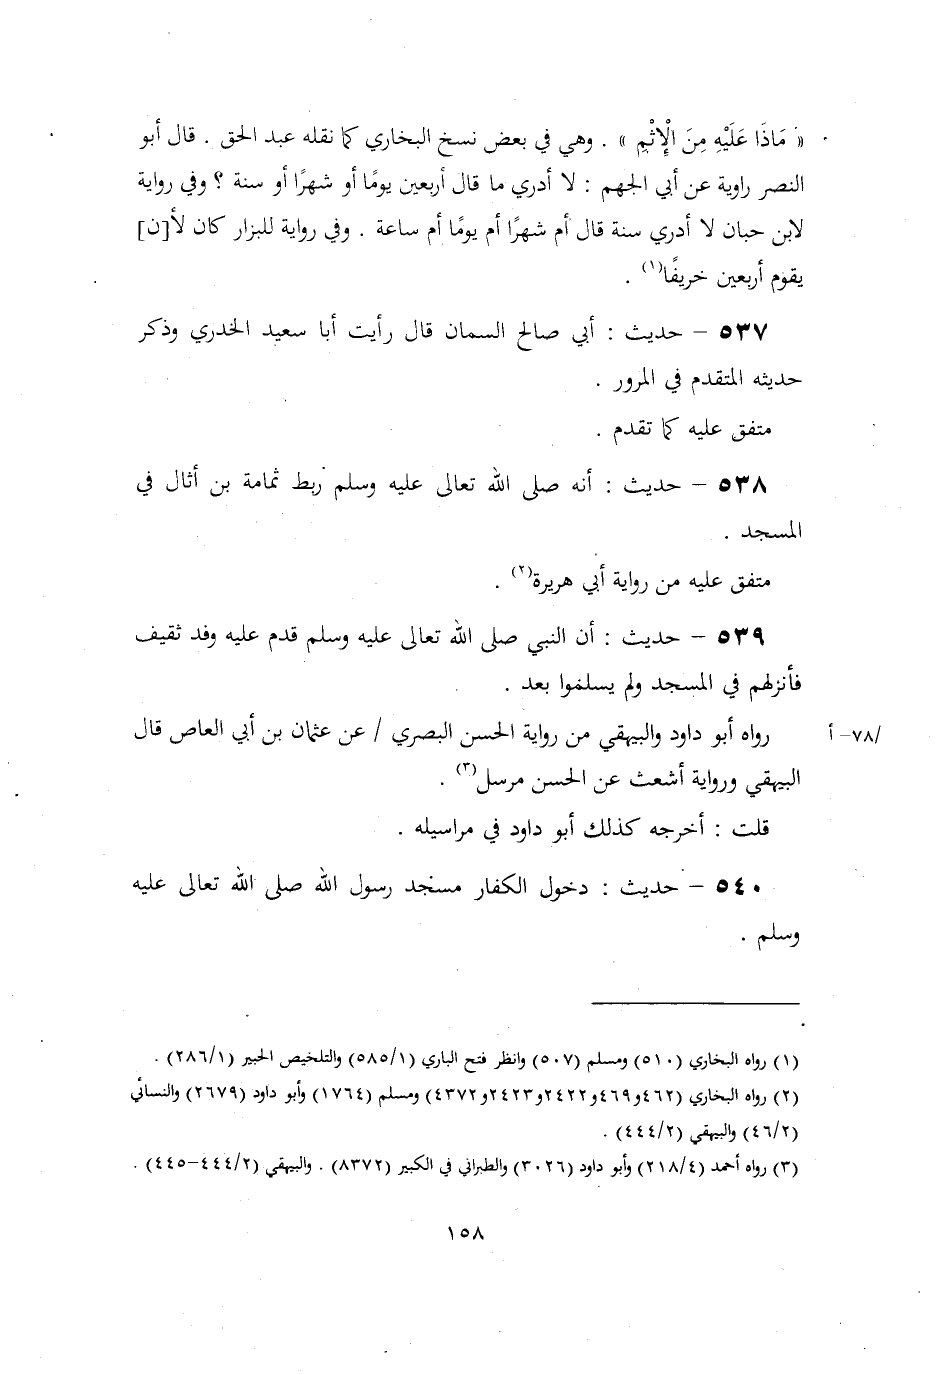 « مَاذَا عَلَيْهِ مِنَ الْإِثْمِ » . وهي في بعض نسخ البخاري كما نقله عبد الحق . قال أبو
النصر راوية عن أبي الجهم : لا أدري ما قال أربعين يومًا أو شهرًا أو سنة ؟ وفي رواية
لابن حبان لا أدري سنة قال أم شهرًا أم يومًا أم ساعة . وفي رواية للبزار كان لأ[ن]
يقوم أربعين خريفًا(١) .
٥٣٧ – حديث : أبي صالح السمان قال رأيت أبا سعيد الخدري وذكر
حديثه المتقدم في المرور .
متفق عليه كما تقدم .
٥٣٨ – حديث : أنه صلى الله تعالى عليه وسلم ربط ثمامة بن أثال في
المسجد .
متفق عليه من رواية أبي هريرة(٢) .
٥٣٩ – حديث : أن النبي صلى الله تعالى عليه وسلم قدم عليه وفد ثقيف
فأنزلهم في المسجد ولم يسلموا بعد .
رواه أبو داود والبيهقي من رواية الحسن البصري / عن عثمان بن أبي العاص قال /٧٨– أ
البيهقي ورواية أشعث عن الحسن مرسل(٣) .
قلت : أخرجه كذلك أبو داود في مراسيله .
٥٤٠ – حديث : دخول الكفار مسجد رسول الله صلى الله تعالى عليه
وسلم .
(١) رواه البخاري (٥١٠) ومسلم (٥٠٧) وانظر فتح الباري (٥٨٥/١) والتلخيص الحبير (٢٨٦/١) .
(٢) رواه البخاري (٤٦٢و٤٦٩و٢٤٢٢و٢٤٢٣و٤٣٧٢) ومسلم (١٧٦٤) وأبو داود (٢٦٧٩) والنسائي
(٤٦/٢) والبيهقي (٤٤٤/٢) .
(٣) رواه أحمد (٢١٨/٤) وأبو داود (٣٠٢٦) والطبراني في الكبير (٨٣٧٢) . والبيهقي (٤٤٤/٢–٤٤٥) .
١٥٨